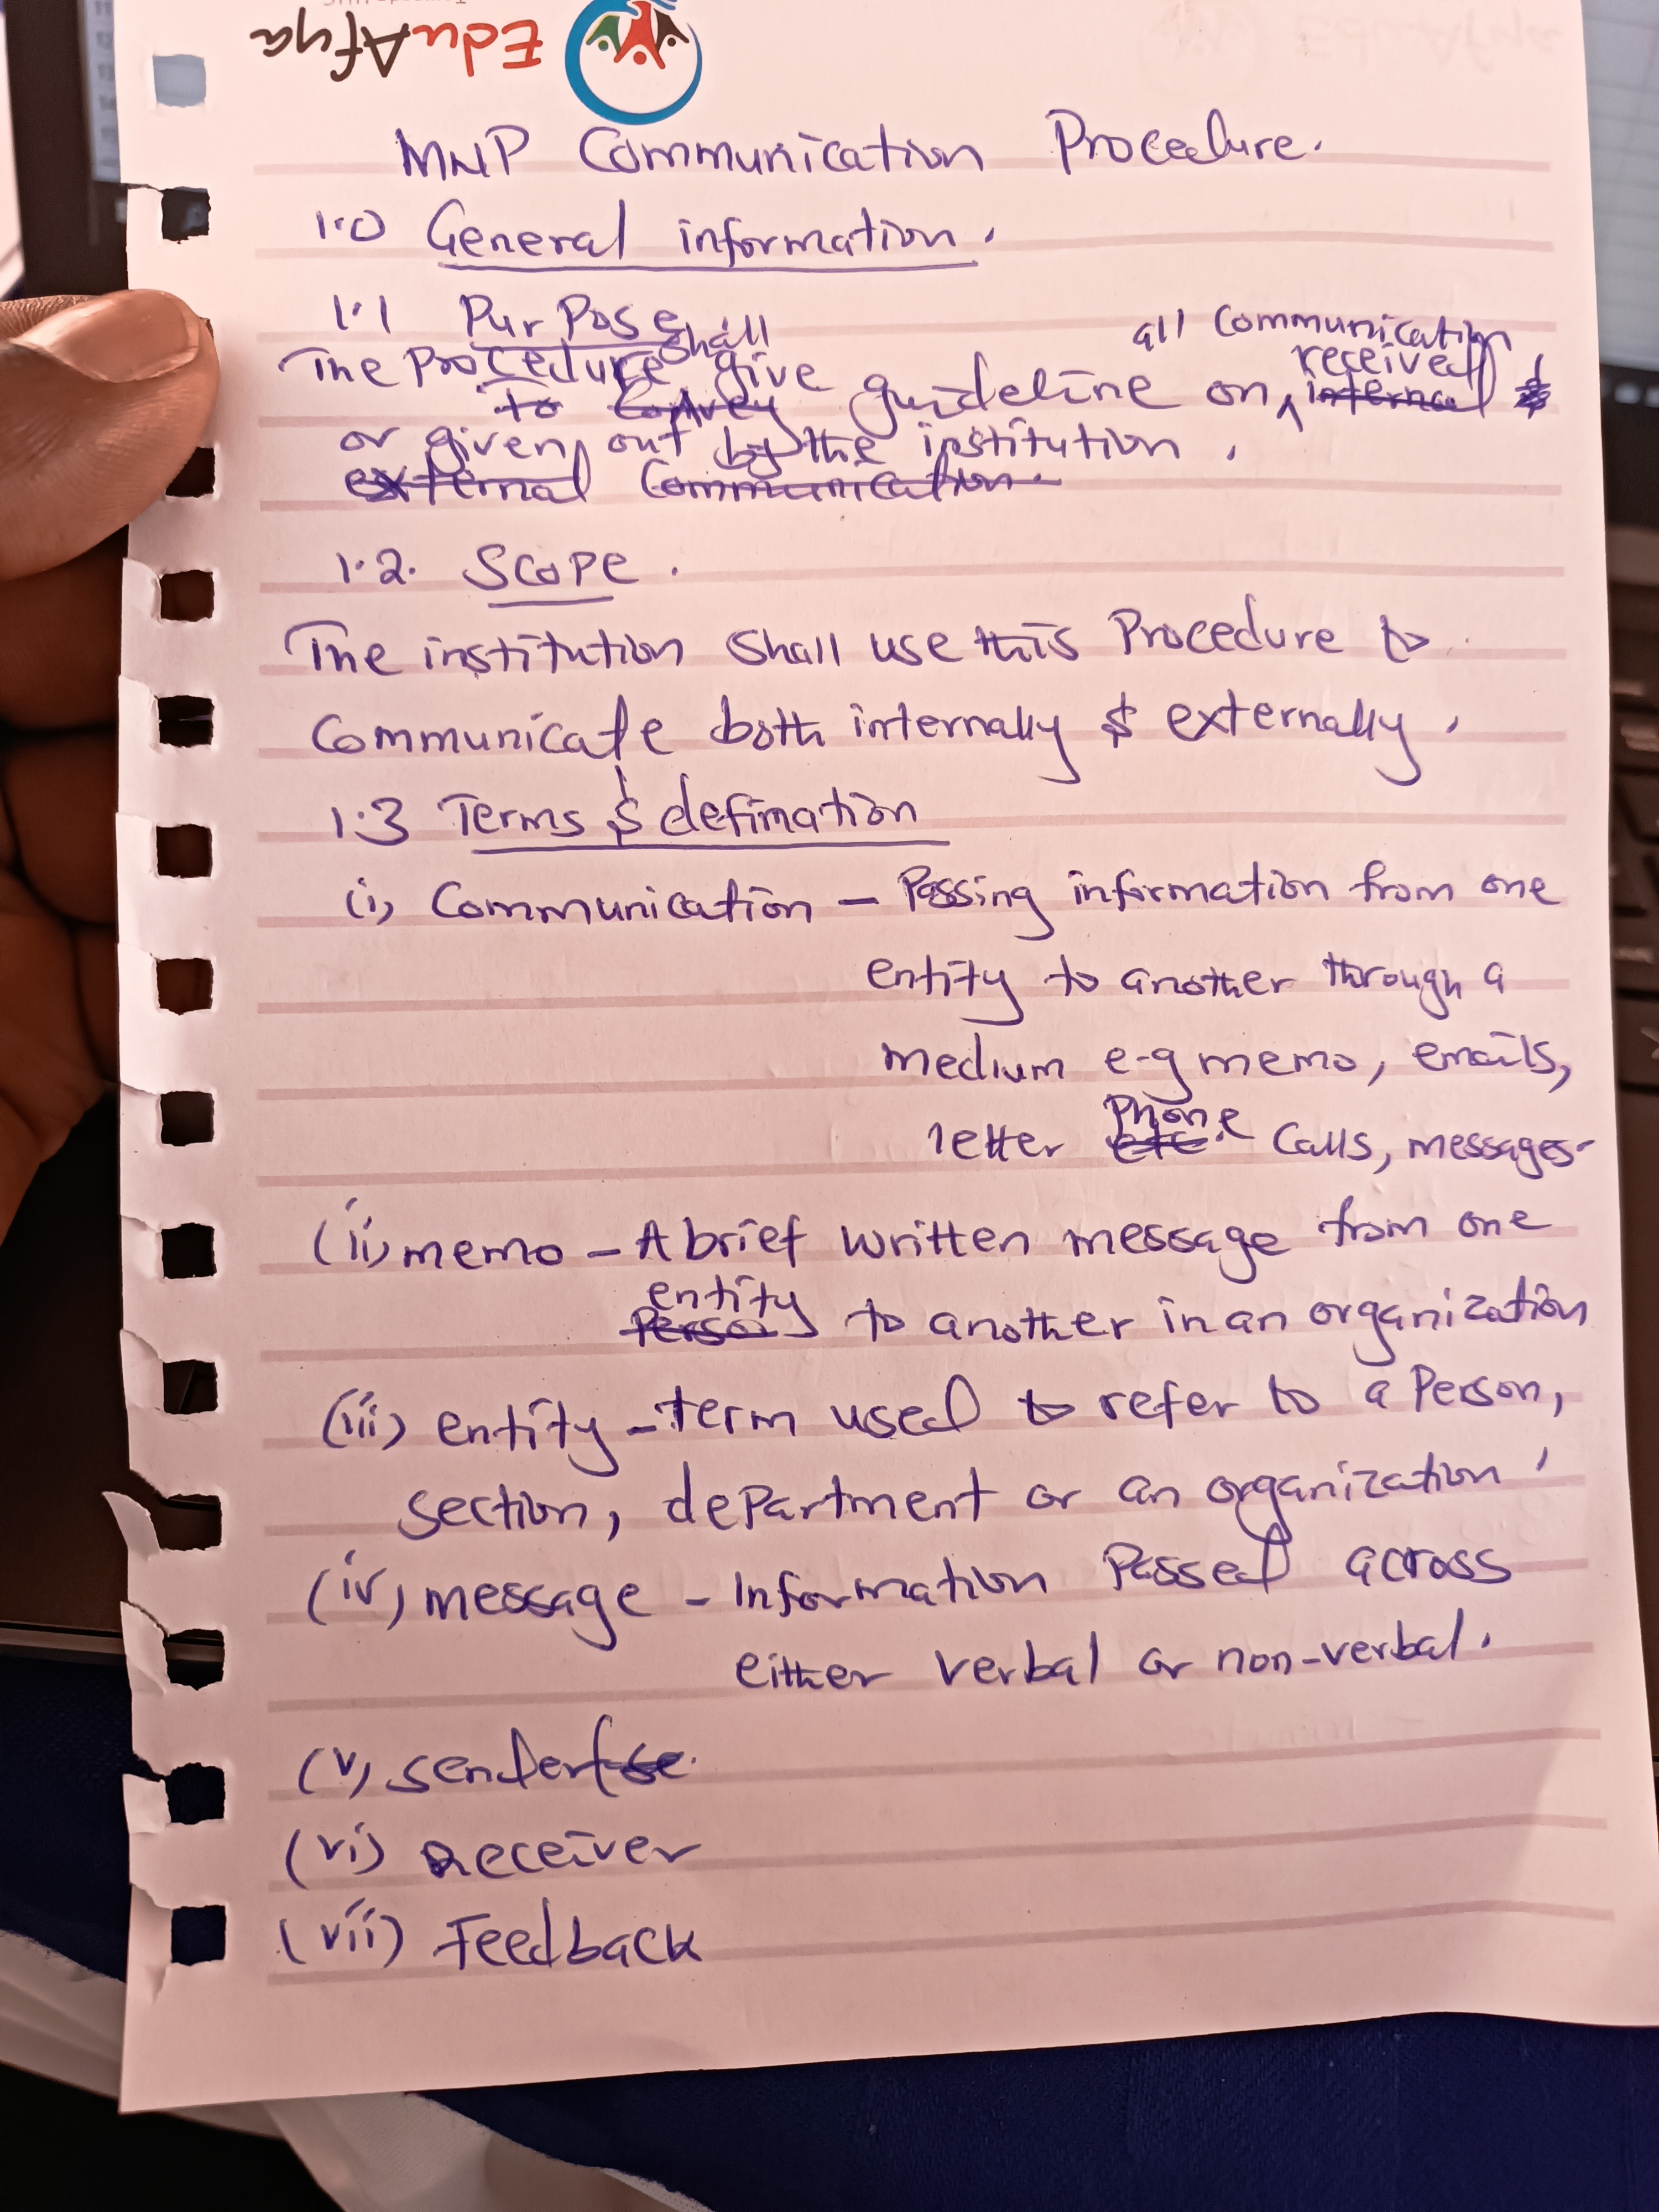 EduAfya
MNP Communication Procedure.
1.0 General information.
1.1 Purpose
The Procedure shall give guideline on all communication received
to convey internal &
or given out by the institution.
external Communication.
1.2. Scope.
The institution shall use this Procedure to
Communicate both internally & externally.
1.3 Terms & defination
(i) Communication - Passing information from one
entity to another through a
medium e-g memo, emails,
letter etc. Phone calls, messages.
(ii) memo - A brief written message from one
Person entity to another in an organization
(iii) entity - term used to refer to a Person,
section, department or an organization.
(iv) message - Information Passed across
either verbal or non-verbal.
(v) sender
(vi) Receiver
(vii) Feedback